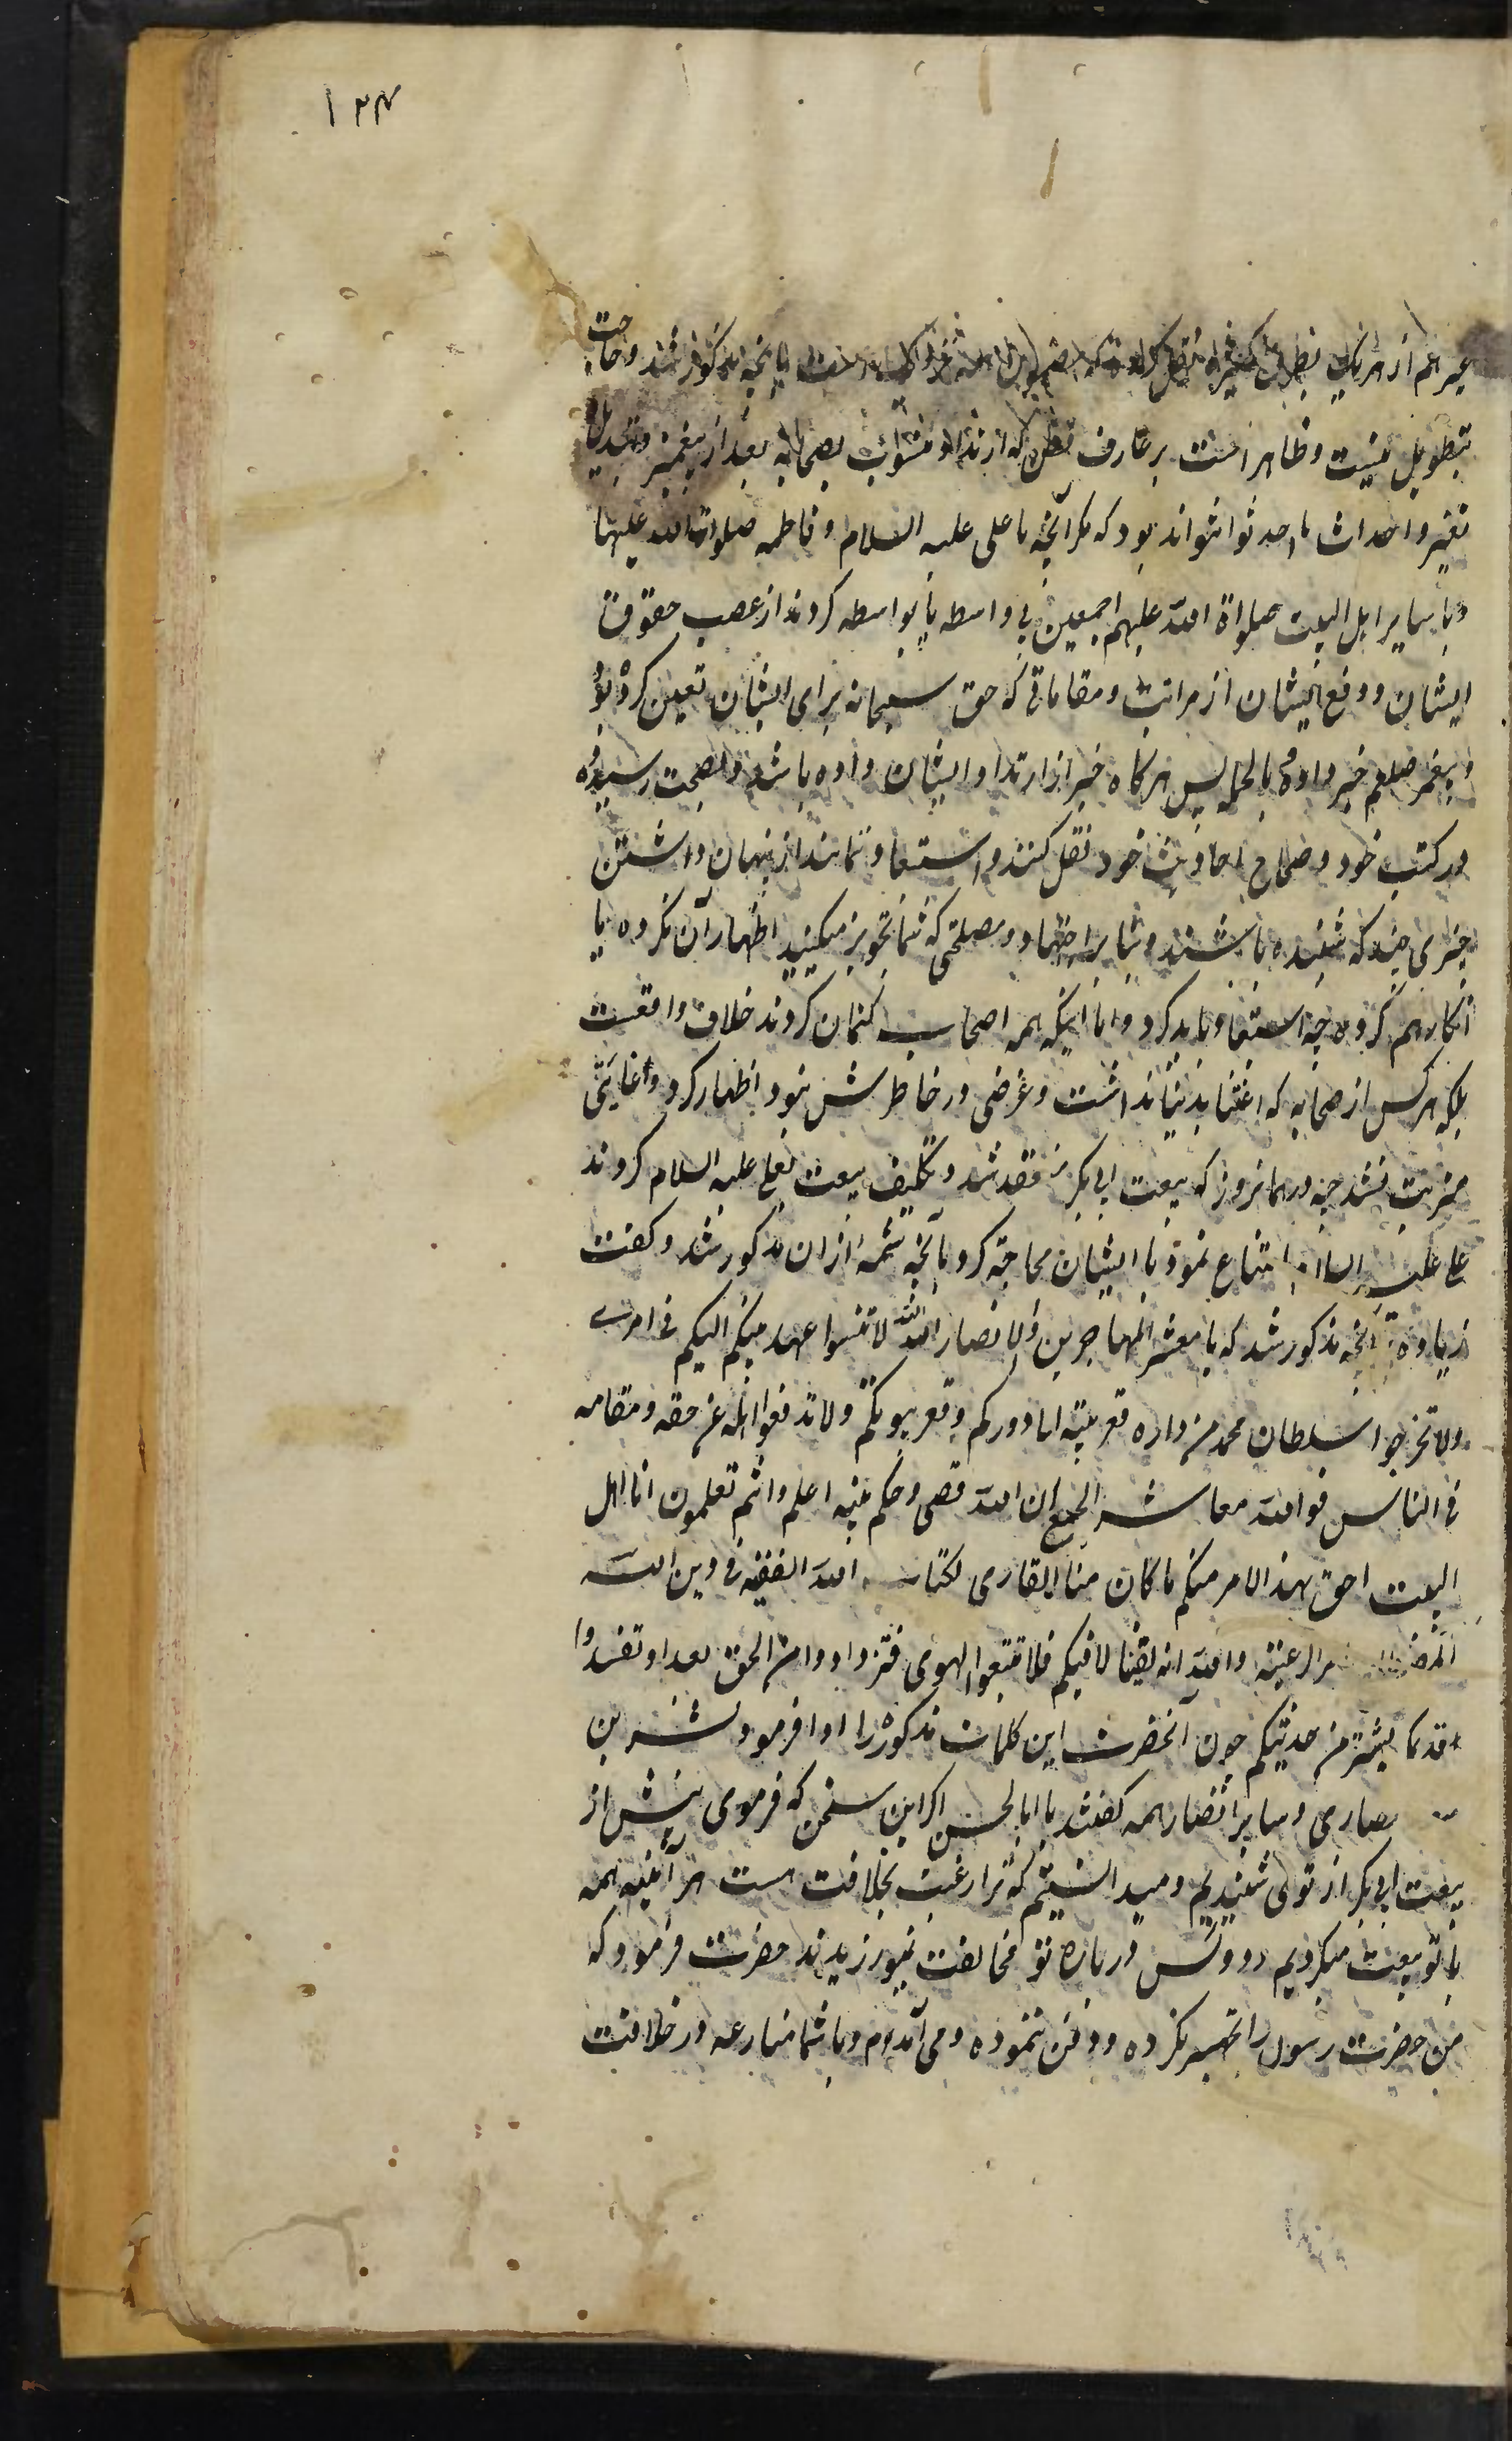 ۱۳۴
غیر هم از هر یک بطرق کثیره نقل کرده که مضمون همه نزدیک است بآنچه مذکور شد و حاجت
بتطویل نیست و ظاهر است بر عارف فطن که ارتداد منسوب بصحابه بعد از پیغمبر و تبدیل یا
تغییر و احداث ما احدثوا نتواند بود که مکر آنچه با علی علیه السلام و فاطمه صلوات الله علیهما
و با سایر اهل البیت صلواة الله علیهم اجمعین بی واسطه یا بواسطه کردند از غصب حقوق
ایشان و دفع ایشان از مراتب و مقاماتی که حق سبحانه برای ایشان تعین کرده بود
و پیغمبر صلعم خبر داده بالجمله پس هرکاه خبر از ارتداد ایشان داده باشد و بصحت رسیده
در کتب خود و صحاح احادیث خود نقل کنند و استبعاد ننمایند از پنهان داشتن
خبری چند که شنیده باشند و بنا بر اجتهاد و مصلحتی که شما تجویز میکنید اظهار آن نکرده یا
انکار هم کرده چه استبعاد باید کرد و اما اینکه همه اصحاب کتمان کردند خلاف واقعست
بلکه هر کس از صحابه که اعتنا بدنیا نداشت و غرضی در خاطرش نبود اظهار کرد و غایتی
مترتب نشد چه در همانروز که بیعت ابی بکر منعقد شد و تکلیف بیعت بعلی علیه السلام کردند
علی علیه السلام امتناع نمود با ایشان محاجه کرد بآنچه شمه از ان مذکور شد و کفت
زیاده بر آنچه مذکور شد که یا معشر المهاجرین و الانصار الله الله لا تنسوا عهد نبیکم الیکم فی امری
و لا تخرجوا سلطان محمد من داره و قعر بیته الی دورکم و قعر بیوتکم و لا تدفعوا اهله عن حقه و مقامه
فی الناس فوالله معاشر الجمع ان الله قضی و حکم نبیه اعلم و انتم تعلمون انا اهل
البیت احق بهذا الامر منکم ما کان منا القاری لکتاب الله الفقیه فی دین الله
الرعیته والله انه لفینا لا فیکم فلا تتبعوا الهوی فتزدادوا من الحق بعدا و تفسدوا
قدیما بشر من حدیثکم چون آنحضرت این کلمات مذکوره را ادا فرمود بشر بن
انصاری و سایر انصار همه کفتند یا ابا الحسن اکر این سخن که فرمودی پیش از
بیعت ابی بکر از تو می شنیدیم و میدانستیم که ترا رغبت بخلافت هست هر آینه همه
با تو بیعت میکردیم دو کس در باره تو مخالفت نمیورزیدند حضرت فرمود که
من حضرت رسول را تجهیز نکرده و دفن ننموده و می آمدم و با شما منازعه در خلافت